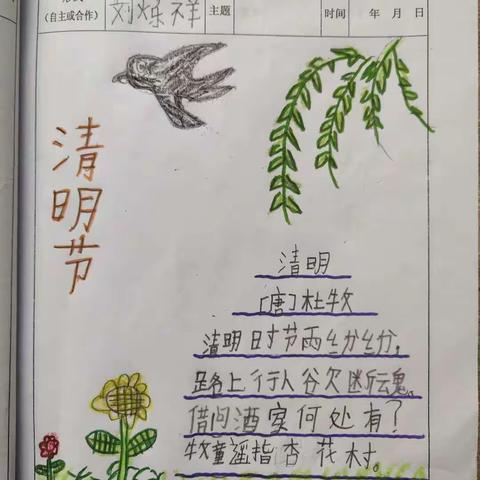 (自主或合作) 刘烁祥 主题 时间 年 月 日
清明节
清明
[唐]杜牧
清明时节雨纷纷,
路上行人欲断魂。
借问酒家何处有?
牧童遥指杏花村。